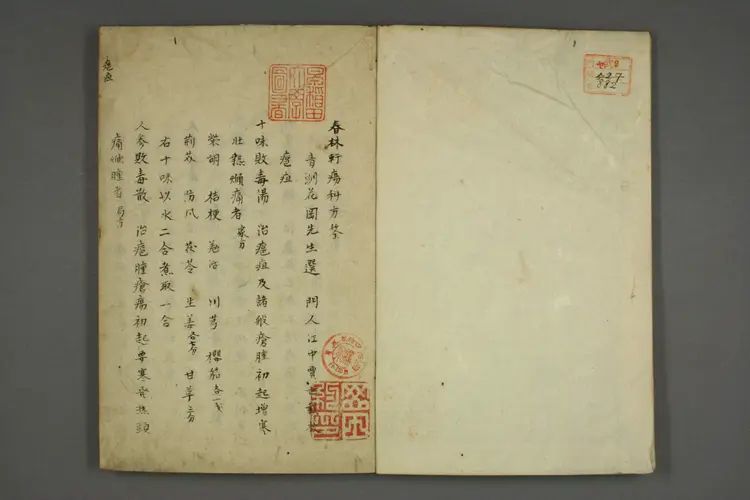 春林軒瘍科方筌
青洲花岡先生選 門人江中
瘟疽
十味敗毒湯 治瘟疽及諸般瘡腫初起增寒
壯熱焮痛者 家方
柴胡 桔梗 羌活 川芎 櫻茹各一戋
荊芥 防风 茯苓 生姜各七分 甘草三分
右十味以水二合煮取一合
人參敗毒散 治瘟腫瘡瘍初起憎寒發熱頭
痛焮腫者 局方
瘟疽